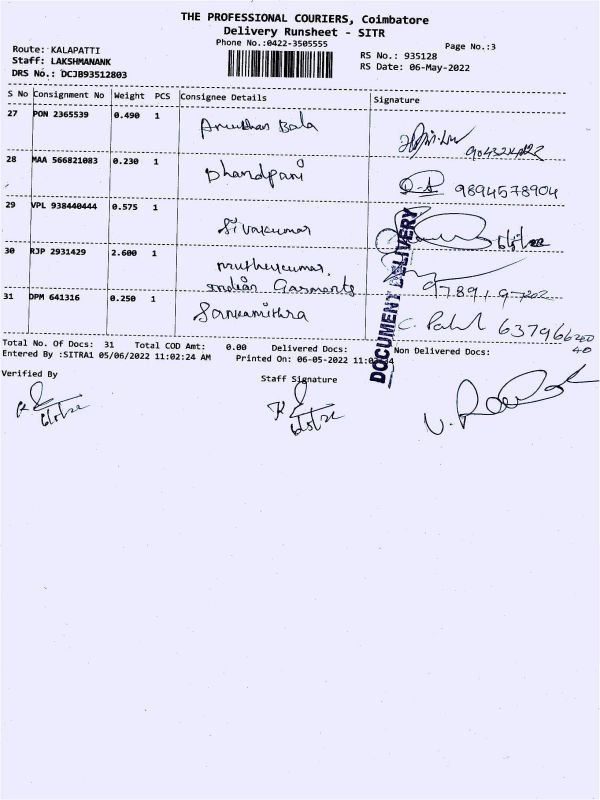 THE PROFESSIONAL COURIERS, Coimbatore
Delivery Runsheet - SITR
Phone No.:0422-3505555
Page No.:3
Route: KALAPATTI
Staff: LAKSHMANANK
DRS No.: DCJB93512803
RS No.: 935128
RS Date: 06-May-2022
S No Consignment No Weight PCS Consignee Details Signature
27 PON 2365539 0.490 1
Bala
28 MAA 566821083 0.230 1
Dhandpani
9894578904
29 VPL 938440444 0.575 1
Sivakumar
30 RJP 2931429 2.600 1
Muthukumar.
Indian Garments
31 DPM 641316 0.250 1
Sankamithra
DOCUMENT DELIVERY
Total No. Of Docs: 31 Total COD Amt: 0.00 Delivered Docs: Non Delivered Docs:
Entered By :SITRA1 05/06/2022 11:02:24 AM Printed On: 06-05-2022
Verified By
Staff Signature
6/5/22
6/5/22